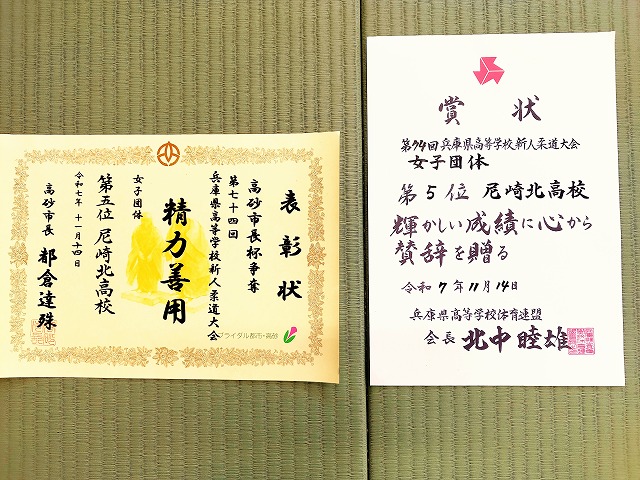 表彰状
高砂市長杯争奪
第七十四回
兵庫県高等学校新人柔道大会
精力善用
女子団体
第五位 尼崎北高校
令和七年 十一月十四日
高砂市長 都倉達殊
ブライダル都市・高砂
賞状
第74回兵庫県高等学校新人柔道大会
女子団体
第5位 尼崎北高校
輝かしい成績に心から
賛辞を贈る
令和7年11月14日
兵庫県高等学校体育連盟
会長 北中睦雄